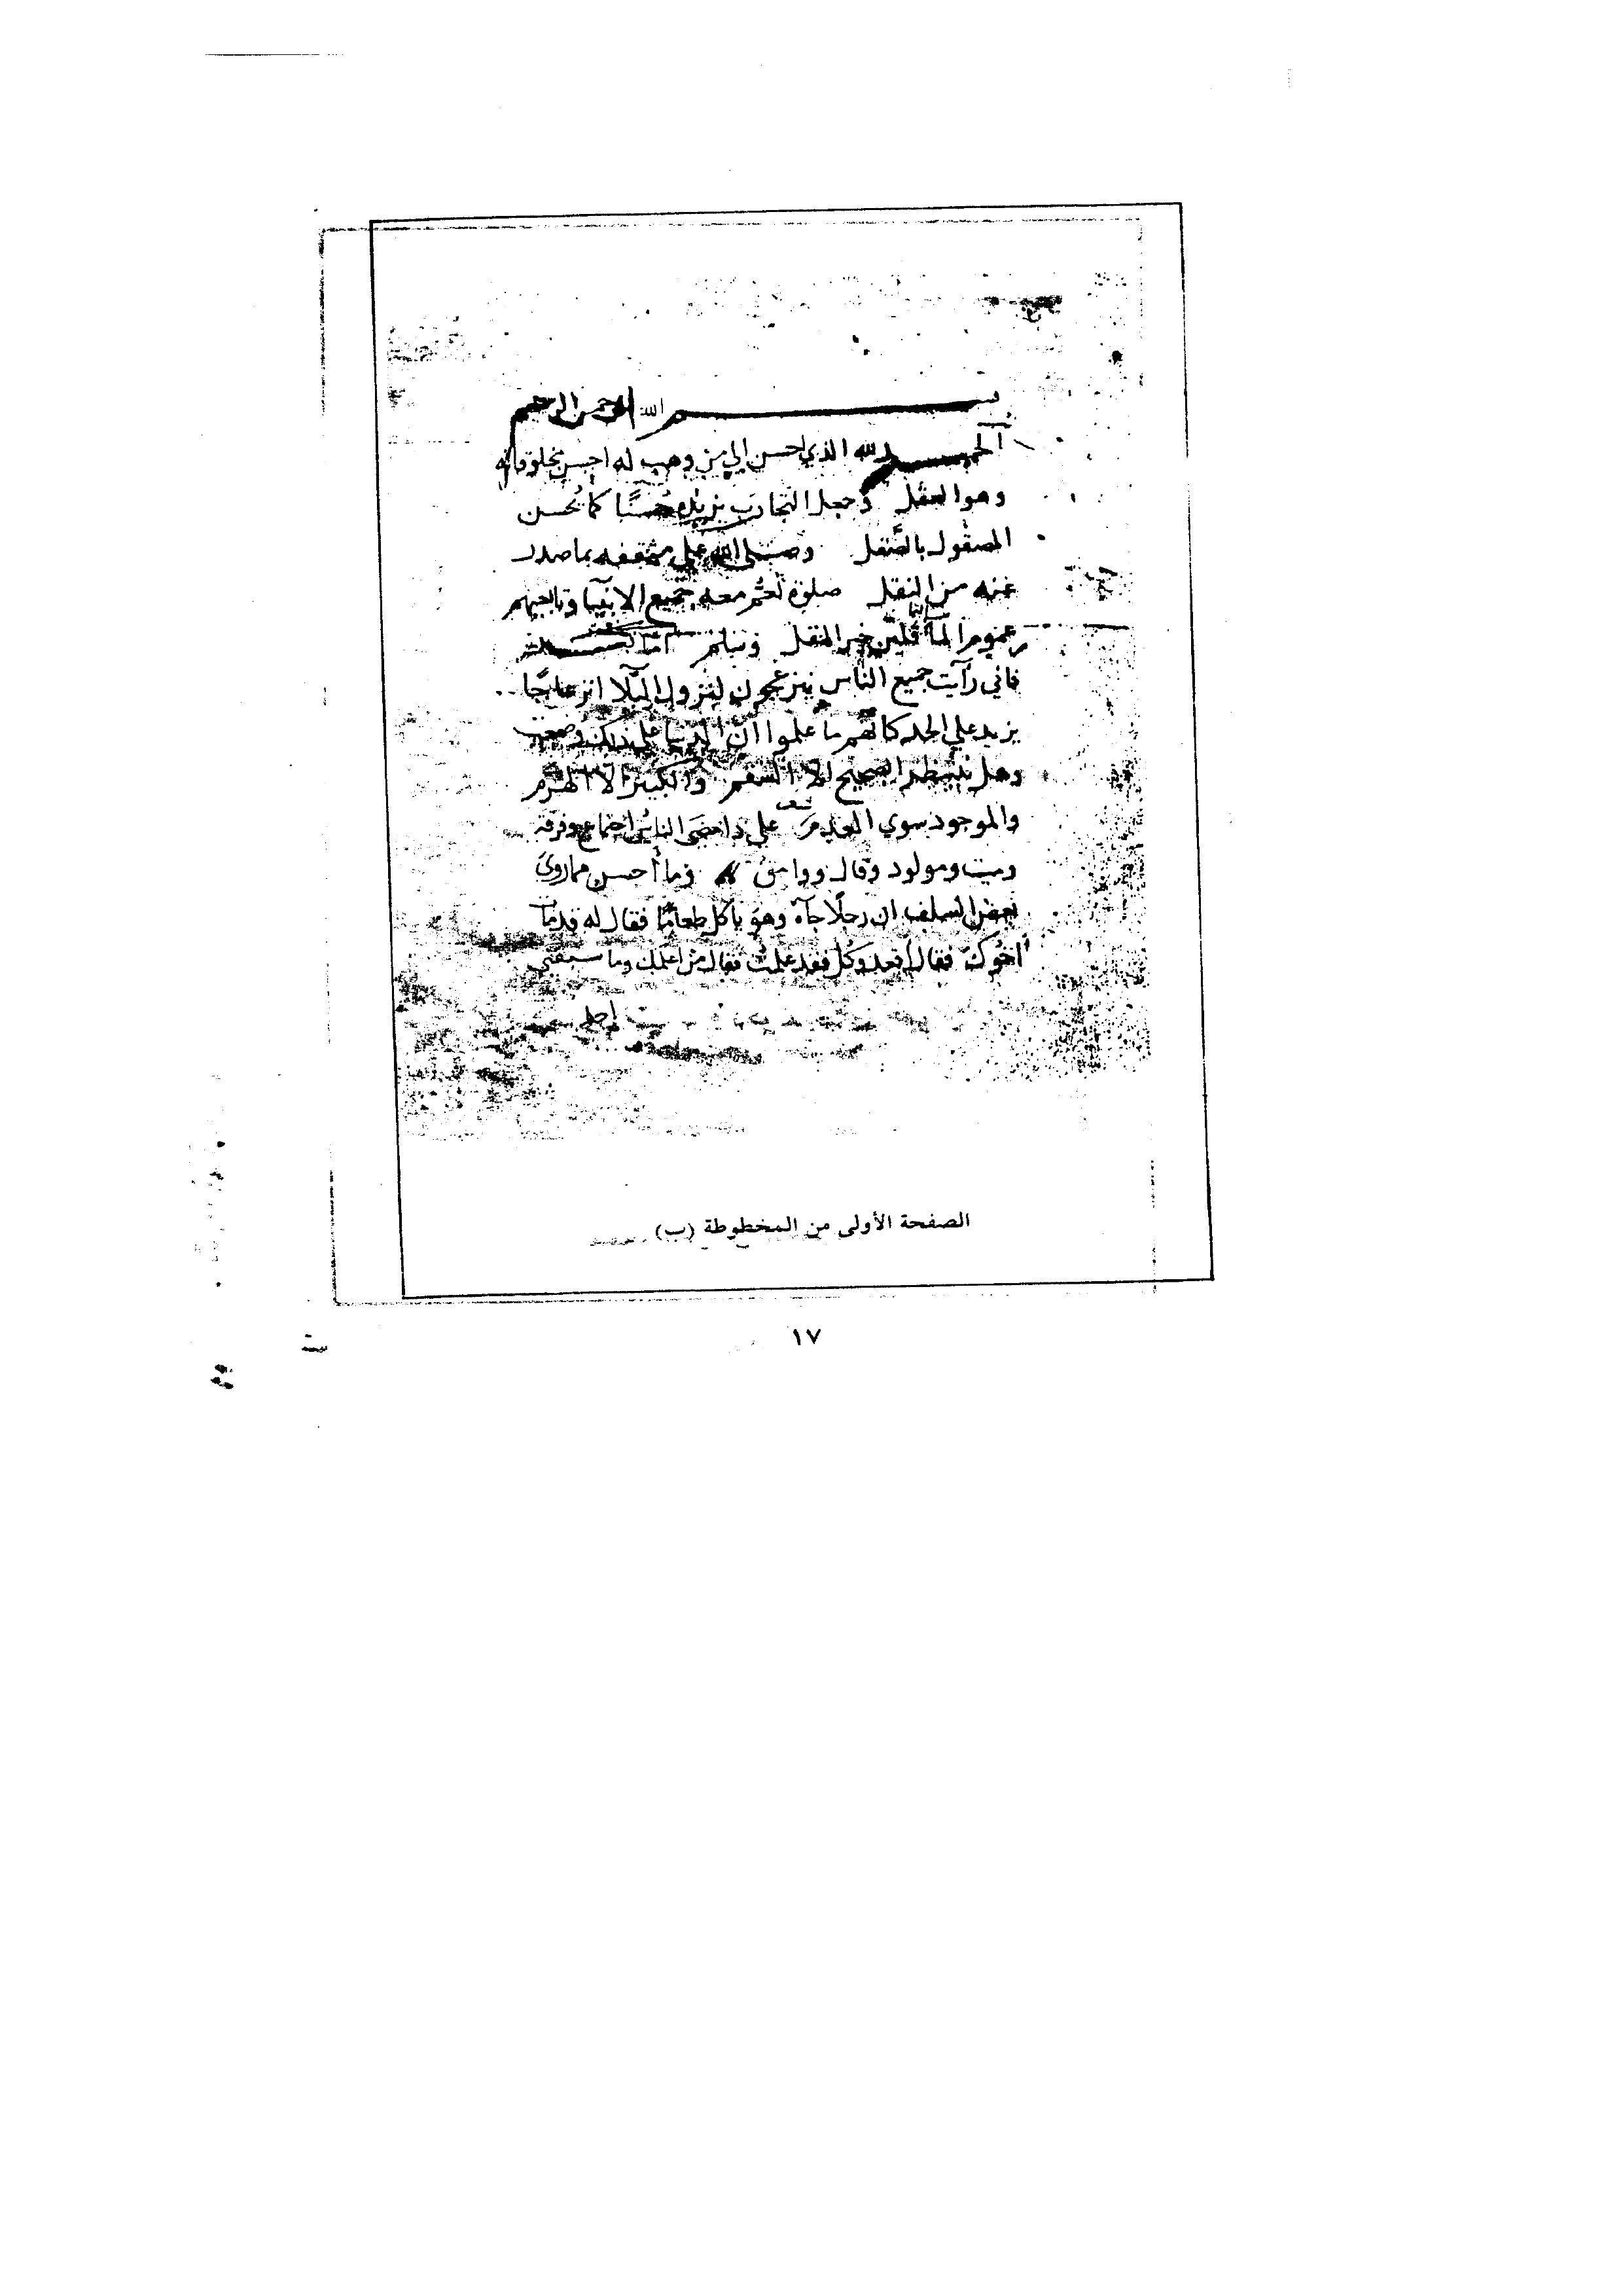 بسم الله الرحمن الرحيم
الحمد لله الذي احسن الي من وهب له احسن مخلوقاته
وهو العقل وجعل التجارب تزيده حسنًا كما يحسن
المصقول بالصقل وصلى الله علي مثقفه بما صدر
عنه من النقل صلوة تعم معه جميع الانبيا وتابعيهم
خير النقل وسلم اما
فاني رأيت جميع الناس ينزعجون لنزول البلا انزعاجًا
يزيد علي الحد كانهم ما علموا ان الدنيا علي ذلك وضعت
وهل ينتظر الصحيح الا السقم والكبير الا الهرم
والموجود سوي العدم شعر علي ذا مضى الناس اجتماع وفرقة
وميت ومولود وقال ووامق وما أحسن ما روى
بعض السلف ان رجلًا جآه وهو ياكل طعامًا فقال له قد مات
أخوك فقال اقعد وكل فقد علمت فقال من اعلمك وما سبقني
احد
الصفحة الأولى من المخطوطة (ب)
١٧